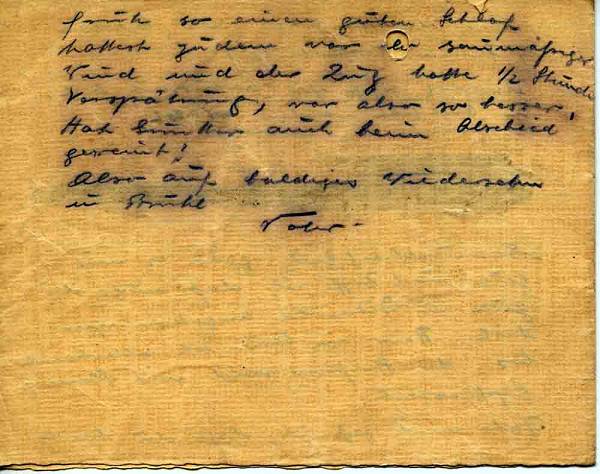 früh so einen guten Schlaf
hattest zudem war ein saumäßiger
Wind und der Zug hatte 1/2 Stunde
Verspätung, war also so besser,
Hat auch beim Abschied
geweint!
Also auf baldiges Wiedersehn
in Brühl
Vater